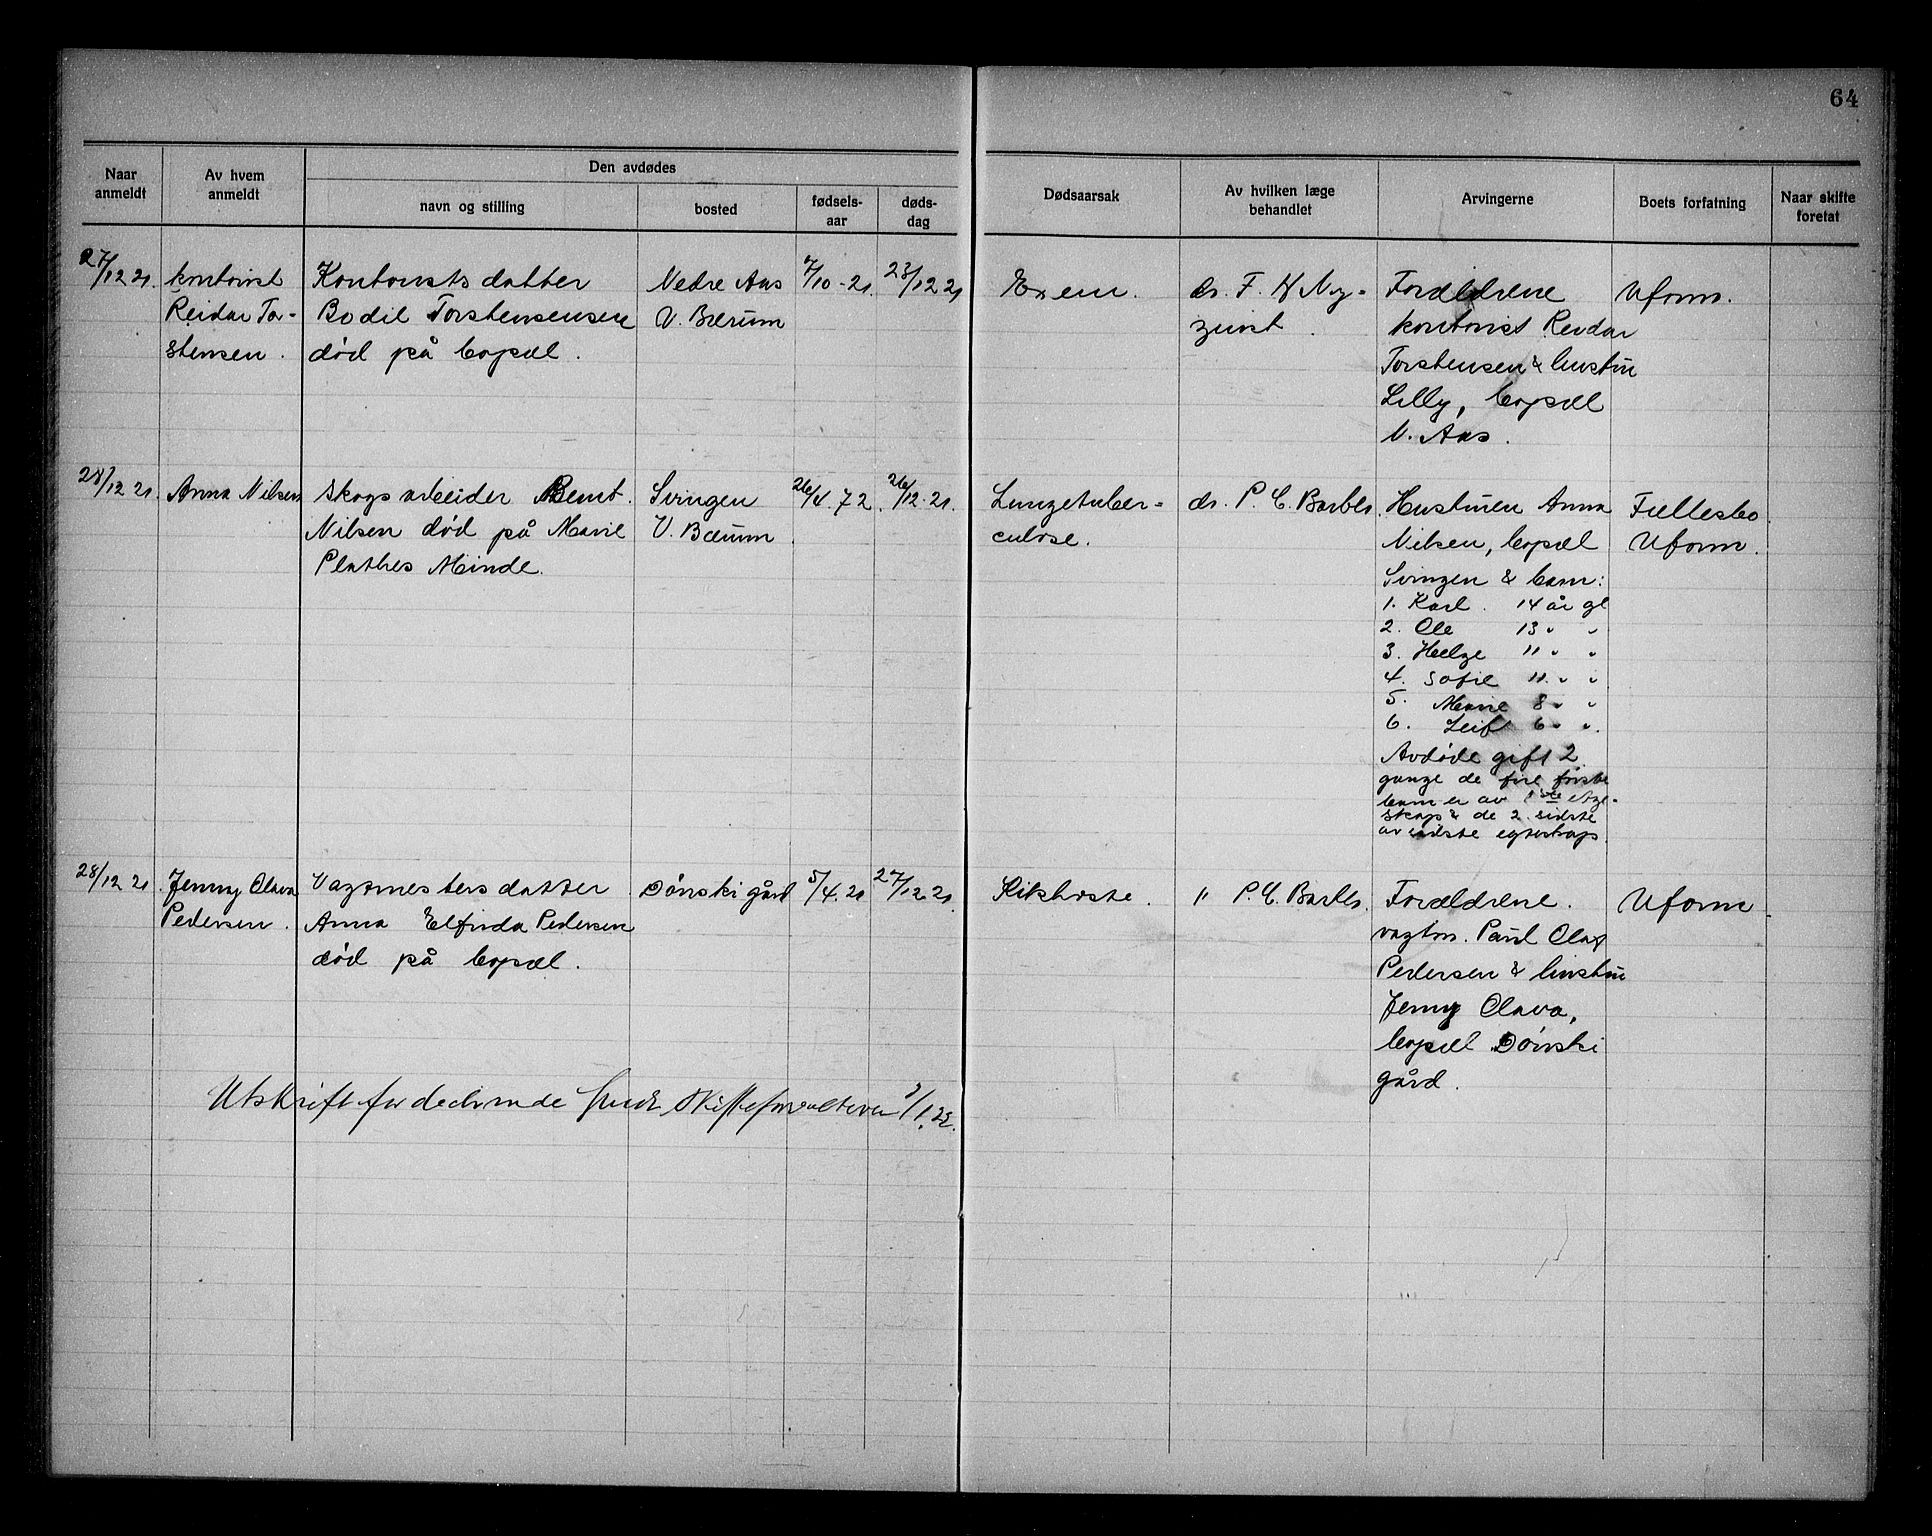 64
Naar anmeldt
Av hvem anmeldt
Den avdødes
navn og stilling
bosted
fødsels-aar
døds-dag
Dødsaarsak
Av hvilken læge behandlet
Arvingerne
Boets forfatning
Naar skifte foretat
27/12 21.
kontorist
Reidar Tor-
stensen.
Kontorists datter
Bodil Torstensensen
død på bopæl.
Nedre Aas
V. Bærum
7/10-21.
23/12 21
Exem.
dr. F. H Ny-
quist.
Forældrene
kontorist Reidar
Torstensen & hustru
Lilly, bopæl
N. Aas.
Uform.
28/12 21.
Anna Nilsen
Skogsarbeider Bernt
Nilsen død på Marie
Plathes Minde.
Svingen
V. Bærum
26/4.72.
26/12.21.
Lungetuber-
culose.
dr. P. C. Barbes.
Hustruen Anna
Nilsen, bopæl
Svingen & barn:
1. Karl. 14 år gl
2. Ole 13 " "
3. Helge 11 " "
4. Sofie 11. " "
5. Marie 8 " "
6. Leif 6 " ".
Avdøde gift 2
gange de fire første
barn er av 1ste egte-
skap & de 2 sidste
av sidste egteskap.
Fællesbo.
Uform.
28/12 21.
Jenny Olava
Pedersen.
Vagtmesters datter
Anna Elfrida Pedersen
død på bopæl.
Dønski gård
5/4.21
27/12 21.
Kikhoste.
" P. C. Barbes.
Forældrene.
vagtm. Paul Olaf
Pedersen & hustru
Jenny Olava,
bopæl Dønski
gård.
Uform.
Utskrift for december sendt Skifteforvalteren /1.22.